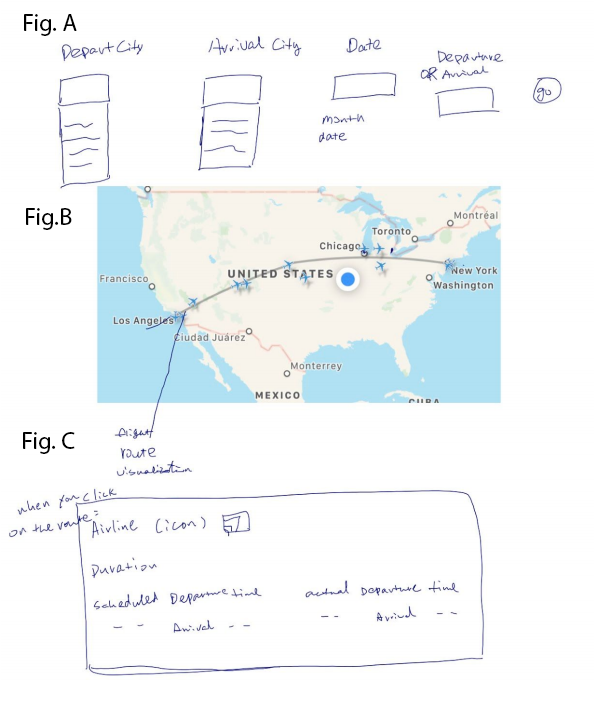 Fig. A
Depart City
Arrival City
Date
Departure
OR Arrival
go
month
date
Fig.B
Montréal
Toronto
Chicago
New York
UNITED STATES
Francisco
Washington
Los Angeles
Ciudad Juárez
Monterrey
MEXICO
CUBA
Fig. C
flight
route
visualization
when you click
on the route:
Airline (icon)
Duration
scheduled Departure time
actual Departure time
-- Arrival --
-- Arrival --